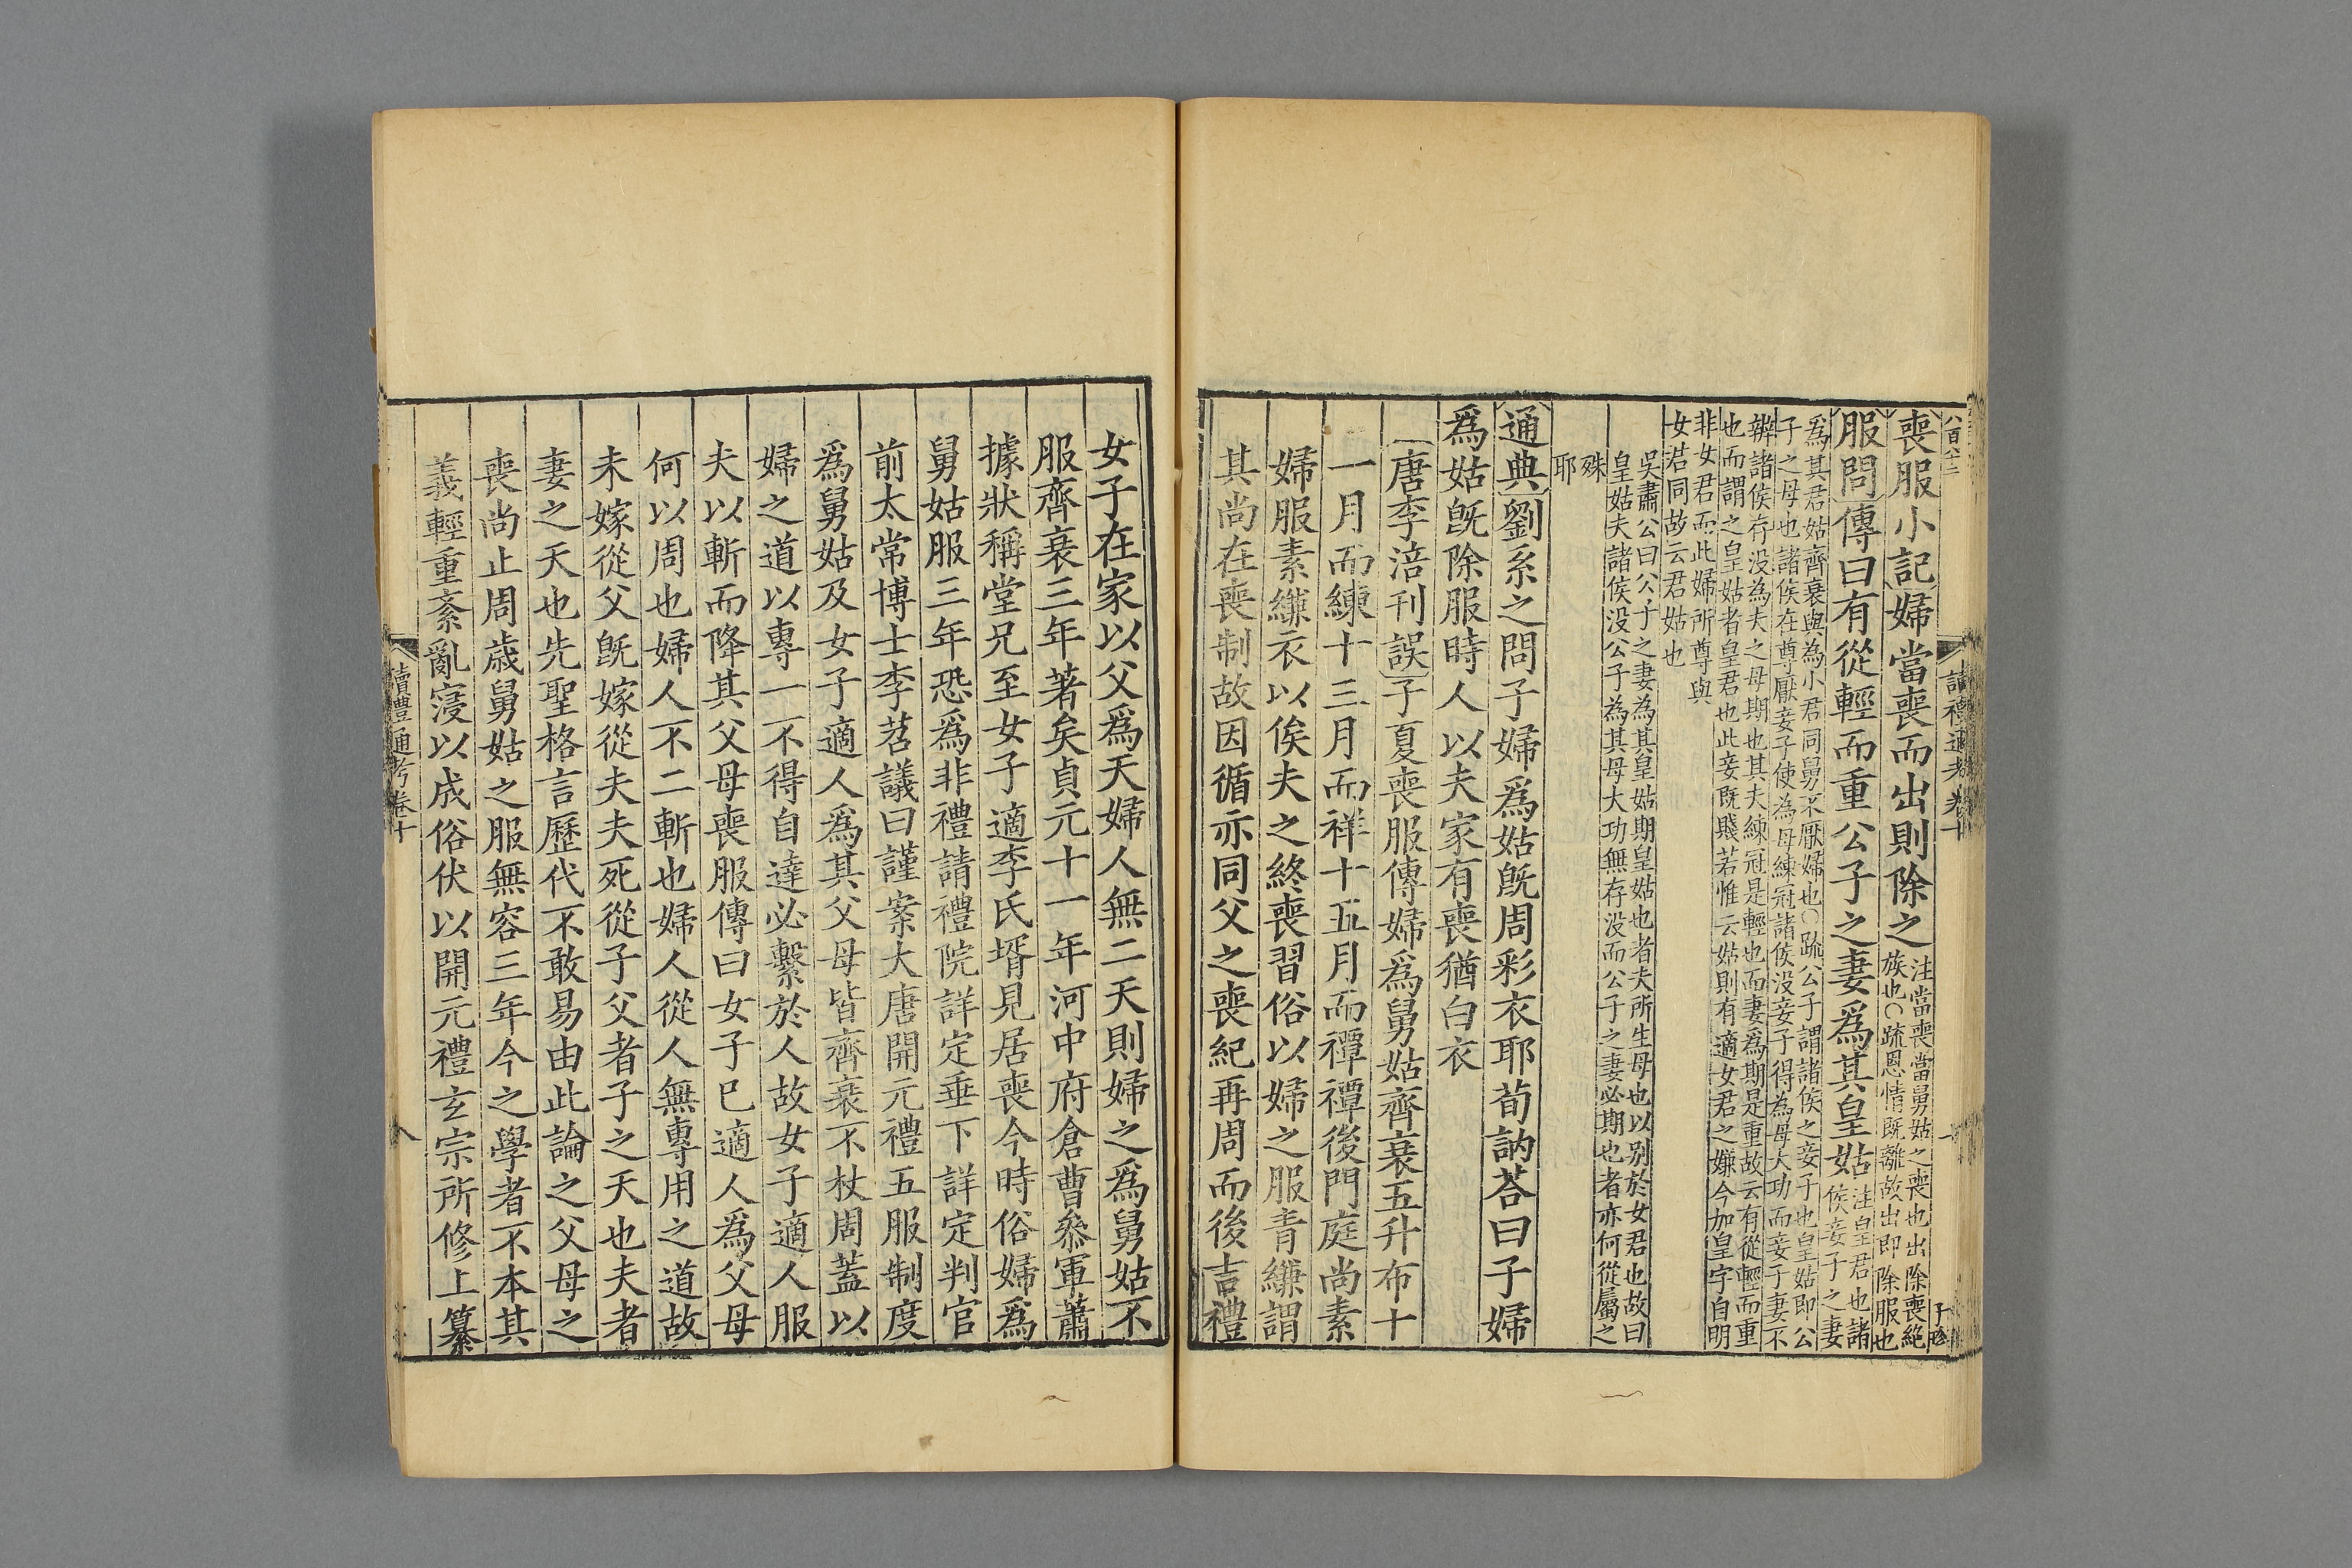 八百八十二
讀禮通考卷十
喪服小記婦當喪而出則除之注當喪當舅姑之喪也出除喪絕族也○疏恩情既離故出即除服也
服問傳曰有從輕而重公子之妻爲其皇姑注皇君也諸侯妾子之妻
爲其君姑齊衰與為小君同舅不厭婦也○疏公子謂諸侯之妾子也皇姑即公
子之母也諸侯在尊厭妾子使為母練冠諸侯没妾子得為母大功而妾子妻不
辨諸侯存没為夫之母期也其夫練冠是輕也而妻爲期是重故云有從輕而重
也而謂之皇姑者皇君也此妾既賤若惟云姑則有適女君之嫌今加皇字自明
非女君而此婦所尊與
女君同故云君姑也
吳肅公曰公子之妻為其皇姑期皇姑也者夫所生母也以别於女君也故曰
皇姑夫諸侯没公子為其母大功無存没而公子之妻必期也者亦何從屬之
殊
耶
通典劉系之問子婦爲姑旣周彩衣耶荀訥荅曰子婦
爲姑旣除服時人以夫家有喪猶白衣
唐李涪刊誤子夏喪服傳婦爲舅姑齊衰五升布十
一月而練十三月而祥十五月而禫禫後門庭尚素
婦服素縑衣以俟夫之終喪習俗以婦之服青縑謂
其尚在喪制故因循亦同父之喪紀再周而後吉禮
女子在家以父爲天婦人無二天則婦之爲舅姑不
服齊衰三年著矣貞元十一年河中府倉曹叅軍蕭
據狀稱堂兄至女子適李氏壻見居喪今時俗婦爲
舅姑服三年恐爲非禮請禮院詳定垂下詳定判官
前太常博士李苕議曰謹案大唐開元禮五服制度
爲舅姑及女子適人爲其父母皆齊衰不杖周蓋以
婦之道以專一不得自達必繫於人故女子適人服
夫以斬而降其父母喪服傳曰女子已適人爲父母
何以周也婦人不二斬也婦人從人無專用之道故
未嫁從父旣嫁從夫夫死從子父者子之天也夫者
妻之天也先聖格言歷代不敢易由此論之父母之
喪尚止周歲舅姑之服無容三年今之學者不本其
義輕重紊亂寖以成俗伏以開元禮玄宗所修上纂
讀禮通考卷十
八